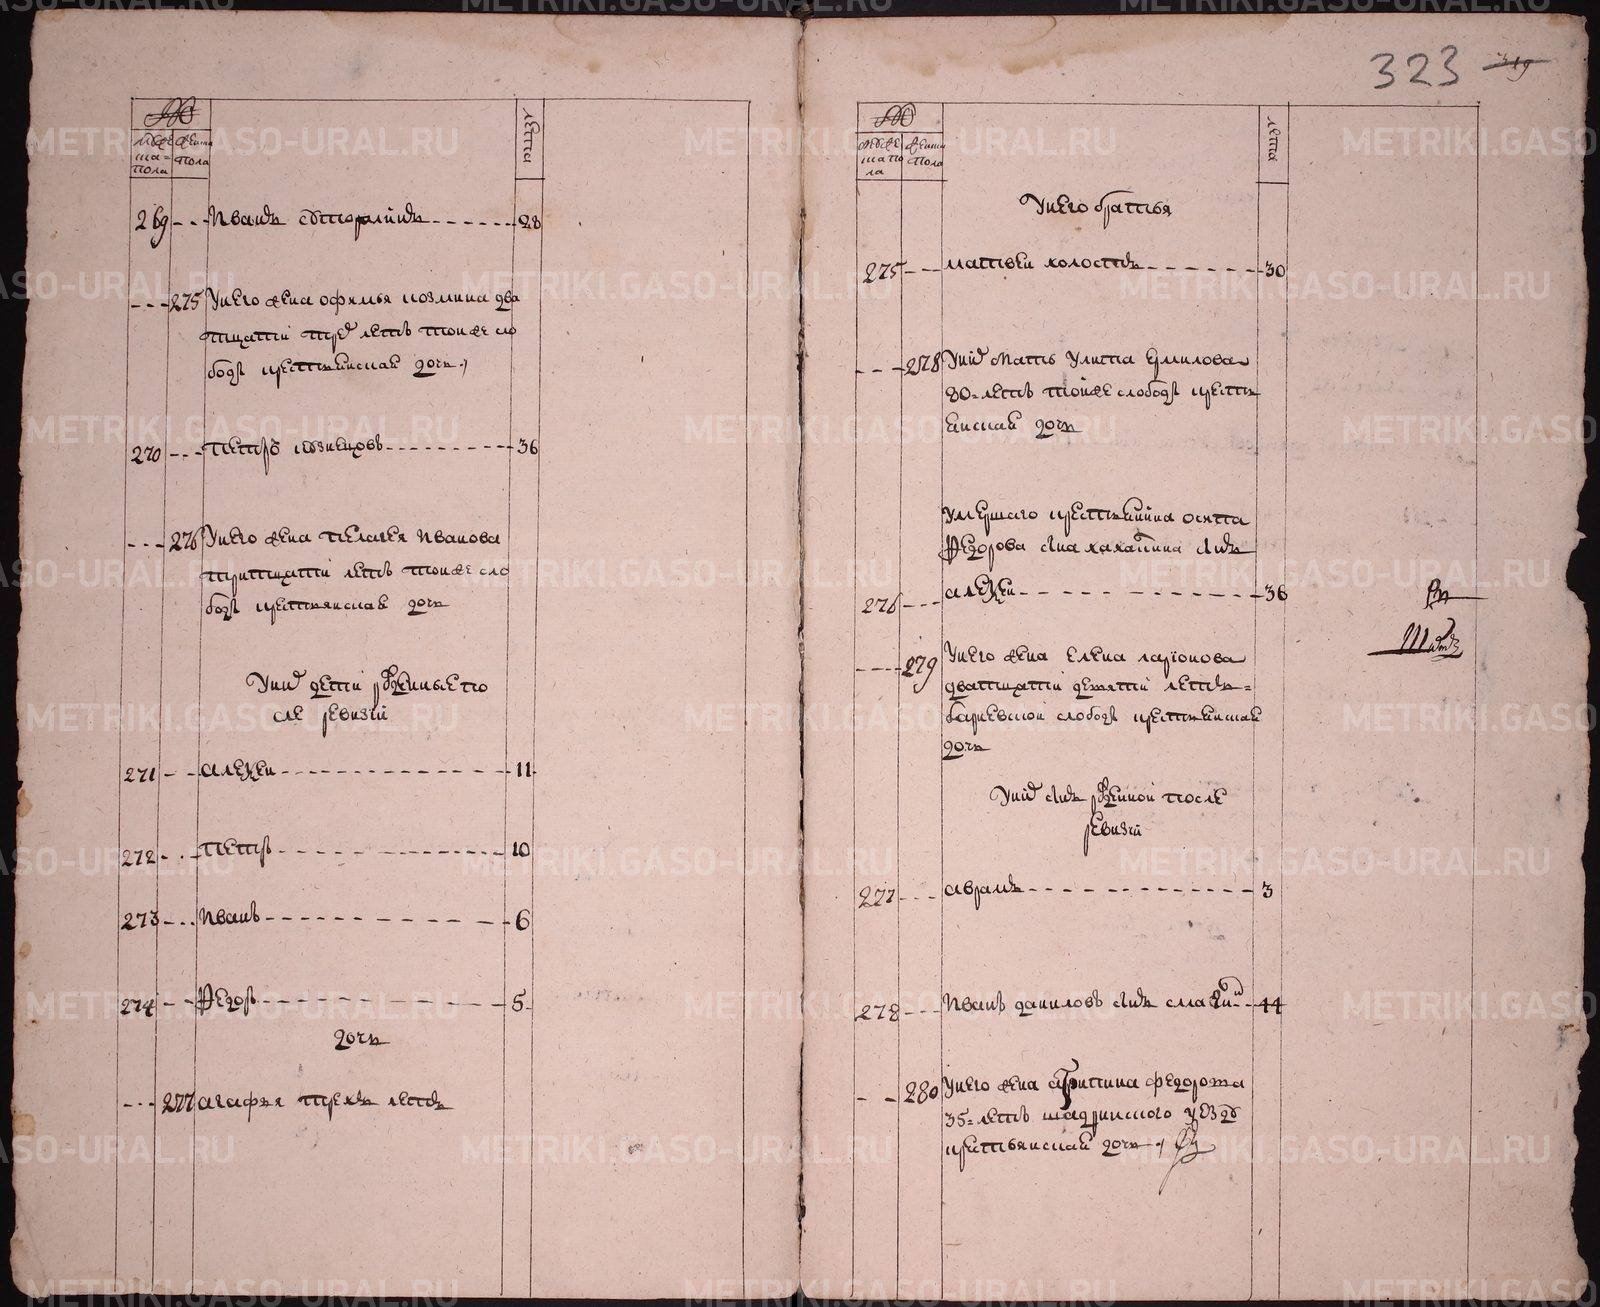 323 319
№
мужеска пола
женска пола
лета
269 Иванъ вторыйнъ 28
275 У него жена офимья козмина два
тцати трехъ летъ тойже сло
боды крестьянская дочь
270 петръ кузнецовъ 36
276 У него жена пелагея Иванова
тритцати летъ тойже сло
боды крестьянская дочь
У нихъ дети рожденные по
сле ревизiи
271 алексеи 11
272 петръ 10
273 Иванъ 6
274 Федоръ 5
дочь
277 агафья трехъ летъ
№
мужеска по
ла
женска пола
лета
У него братья
275 матвеи холостъ 30
278 У нихъ мать Улита Ермилова
80 летъ тойже слободы кресть
янская дочь
Умершаго крестьянина осипа
Федорова сына
276 алексеи 36
279 У него жена Елена ларiонова
дватцати девяти летъ
слободы крестьянская
дочь
У нихъ сынъ рожденной после
ревизiи
277 аврамъ 3
278 Иванъ даниловъ сынъ 44
280 У него жена агрипина федорова
35 летъ шадринского уезду
крестьянская дочь
METRIKI.GASO-URAL.RU